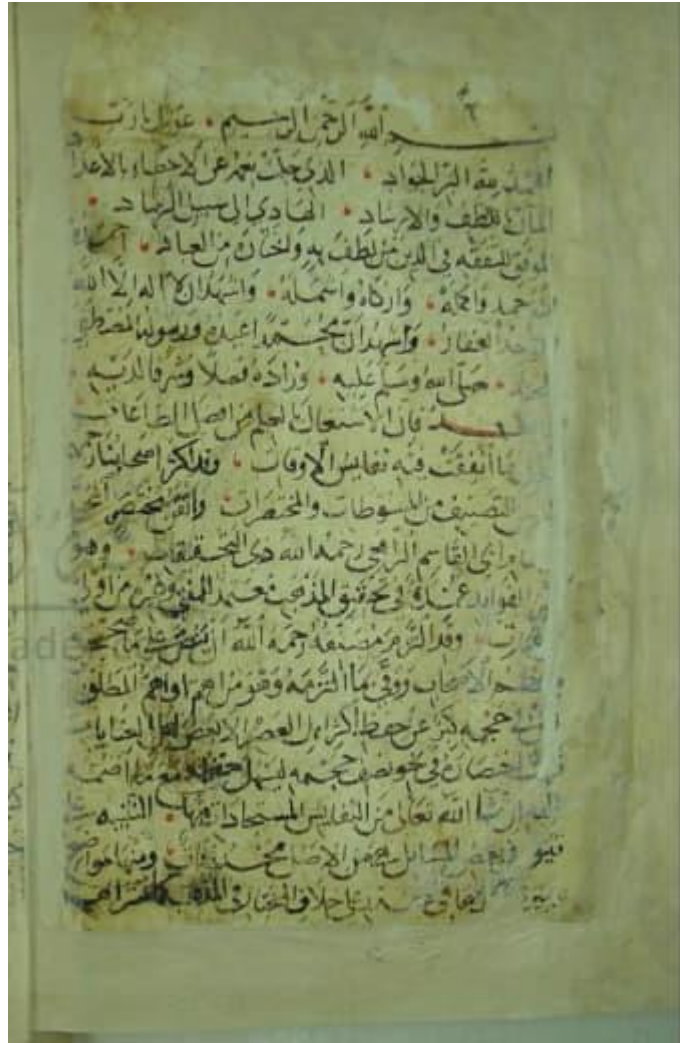 بسم الله الرحمن الرحيم • عونك يا رب
الحمد لله البر الجواد • الذي جلت نعمه عن الاحصاء بالاعداد
المان باللطف والارشاد • الهادي الى سبيل الرشاد •
الموفق للتفقه في الدين من لطف به واختاره من العباد • احمده
حمد واكمله • وازكاه واشمله • واشهد ان لا اله الا الله
الواحد الغفار • واشهد ان محمدا عبده ورسوله المصطفى
المختار • صلى الله وسلم عليه • وزاده فضلا وشرفا لديه •
بعد فان الاشتغال بالعلم من افضل الطاعات
ما انفقت فيه نفايس الاوقات • وقد اكثر اصحابنا رحمهم
من التصنيف من المبسوطات والمختصرات • واتقن مختصر
ابي القاسم الرافعي رحمه الله ذي التحقيقات • وهو
الفوايد عمدة في تحقيق المذهب معتمد للمفتي وغيره من اولي
الرغبات • وقد التزم مصنفه رحمه الله ان ينص على ما صححه
معظم الاصحاب ووفى ما التزمه وهو من اهم او اهم المطلوبات
حجمه كبر عن حفظ اكثر اهل العصر الا بعض اهل العنايات
اختصاره في نحو نصف حجمه ليسهل حفظه مع ما اضمه
اليه ان شا الله تعالى من النفايس المستجادات منها • التنبيه على
قيود في بعض المسائل هي من الاصل محذوفات • ومنها مواضع
يسيرة على خلاف المختار في المذهب كما ستراها